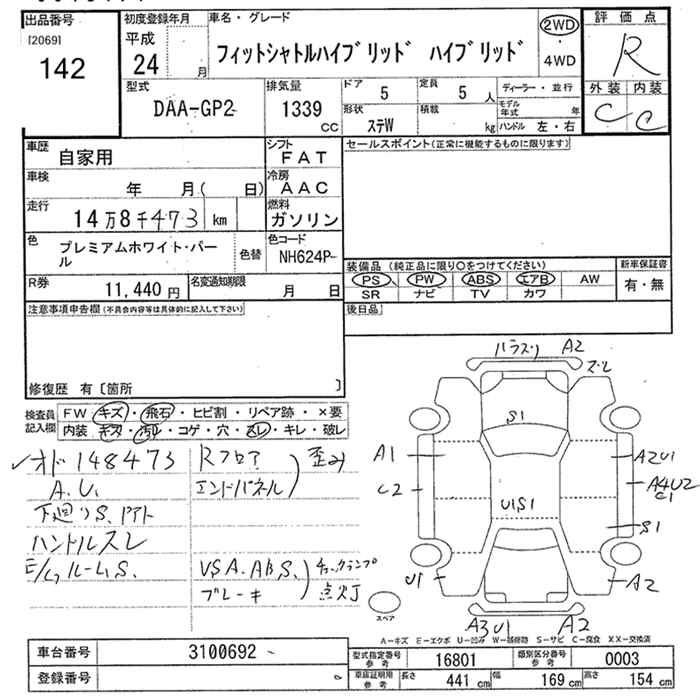 出品番号
[2069]
142
初度登録年月
平成
24 月
車名・グレード
フィットシャトルハイブリッド ハイブリッド
2WD
・
4WD
評価点
R
外装 内装
C C
型式
DAA-GP2
排気量
1339
CC
ドア
5
定員
5 人
形状
ステW
積載
kg
ディーラー・並行
モデル年式 年
ハンドル 左・右
車歴
自家用
シフト
FAT
車検
年 月( 日)
冷房
AAC
走行
14万8千473 km
燃料
ガソリン
色
プレミアムホワイト・パール
色替
色コード
NH624P
R券
11,440 円
名変通知期限
月 日
セールスポイント(正常に機能するものに限ります)
装備品 (純正品に限り○をつけてください)
PS PW ABS エアB AW
SR ナビ TV カワ
新車保証書
有・無
後日品
注意事項申告欄(不具合内容等は具体的に記入して下さい)
修復歴 有〔箇所 〕
検査員記入欄
FW キズ・飛石・ヒビ割・リペア跡・×要
内装 キズ・汚れ・コゲ・穴・スレ・キレ・破レ
✓オド148473
A.U.
下廻りS.
ハンドルスレ
E/G,ルームS.
Rフロア
エンドパネル
歪み
VSA.ABS.
ブレーキ
チェックランプ
点灯
ハラスリ A2
ズレ
S1
A1
C2
A2U1
A4U2
C1
U1S1
S1
U1
A2
A3U1
A2
スペア
A-キズ E-エクボ U-凹み W-補修跡 S-サビ C-腐食 XX-交換済
車台番号
3100692
登録番号
型式指定番号
参考
16801
類別区分番号
参考
0003
車庫証明用
参考
長さ
441 cm
幅
169 cm
高さ
154 cm